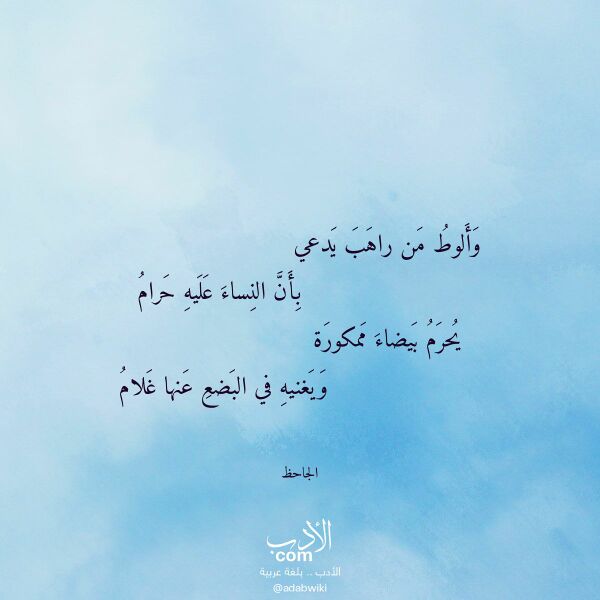 وَأَلوطُ مَن راهَبَ يَدعي
بِأَنَّ النِساءَ عَلَيهِ حَرامُ
يُحرَمُ بَيضاءَ مَمكورَة
وَيَغنيهِ في البَضعِ عَنها غَلامُ
الجاحظ
الأدب
com
الأدب .. بلغة عربية
@adabwiki